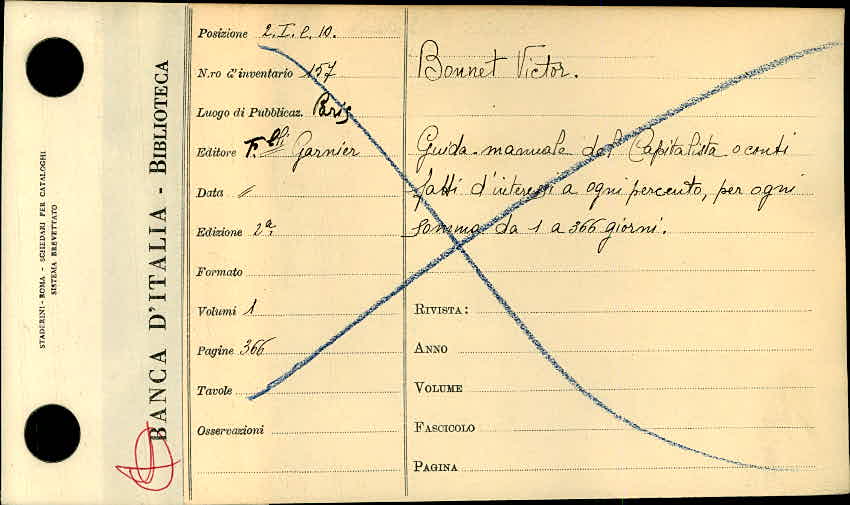 STADERINI - ROMA - SCHEDARI PER CATALOGHI
SISTEMA BREVETTATO
BANCA D'ITALIA - BIBLIOTECA
Posizione 2. I. C. 10.
N.ro d'inventario 157
Luogo di Pubblicaz. Paris
Editore F.lli Garnier
Data "
Edizione 2a.
Formato
Volumi 1
Pagine 366
Tavole
Osservazioni
Bonnet Victor.
Guida-manuale del Capitalista o conti
fatti d'interessi a ogni percento, per ogni
somma da 1 a 366 giorni.
RIVISTA:
ANNO
VOLUME
FASCICOLO
PAGINA